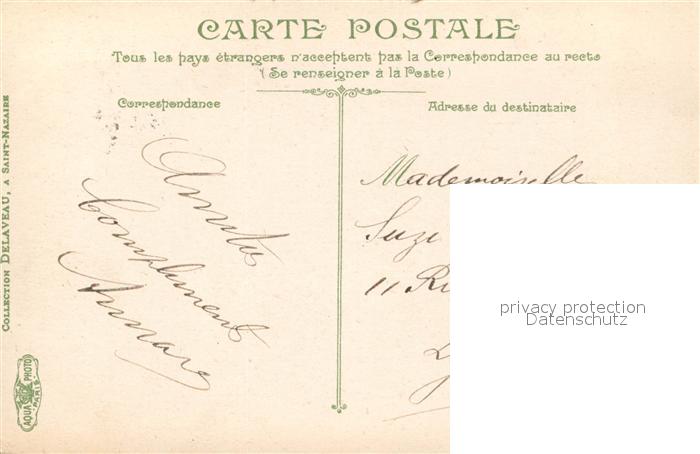 CARTE POSTALE
Tous les pays étrangers n'acceptent pas la Correspondance au recto
(Se renseigner à la Poste)
Correspondance
Adresse du destinataire
COLLECTION DELAVEAU, A SAINT-NAZAIRE
AQUA PHOTO
PARIS
Compliment
Mademoiselle
Suz
11 Ru
privacy protection
Datenschutz